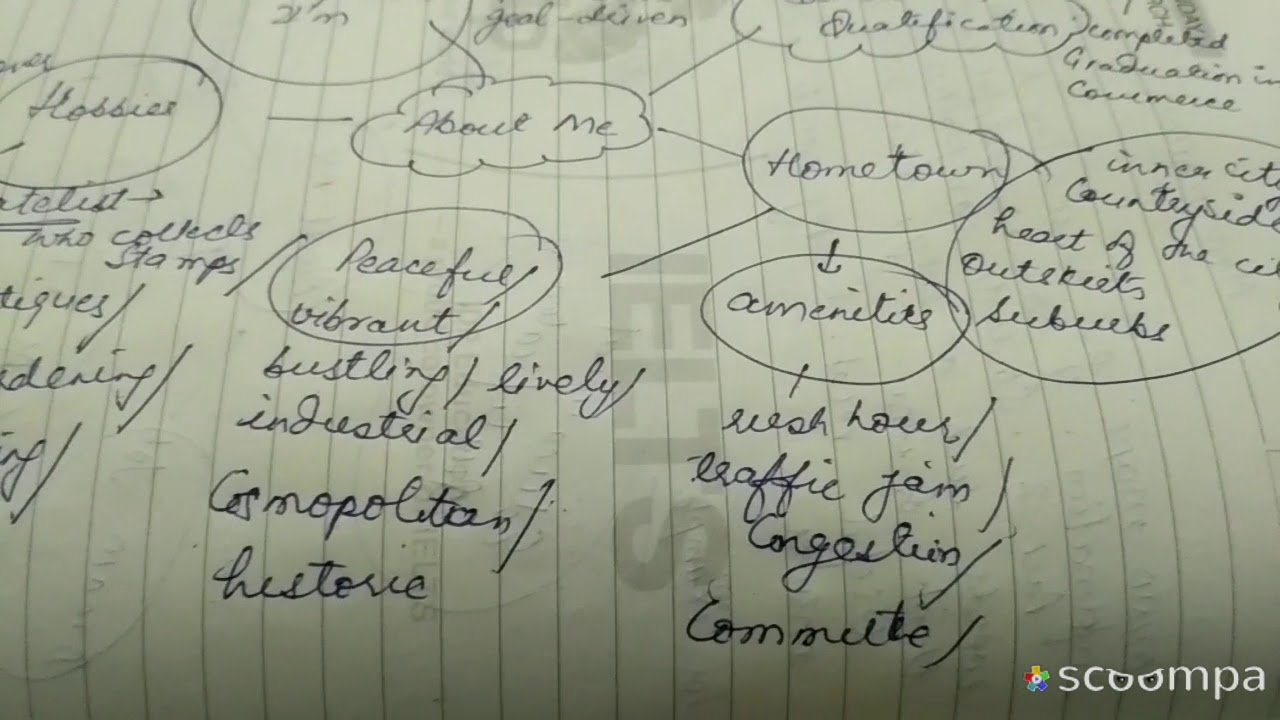 I'm
goal-driven
Qualification
completed
Graduation in
Commerce
Hobbies
About Me
Hometown
inner cit
Countryside
heart of the ci
outskirts
suburbs
who collects
stamps
Peaceful/
vibrant/
bustling/ lively/
industrial/
Cosmopolitan/
historic
amenities
rush hour/
traffic jam/
Congestion/
Commute/
IELTS
scoompa